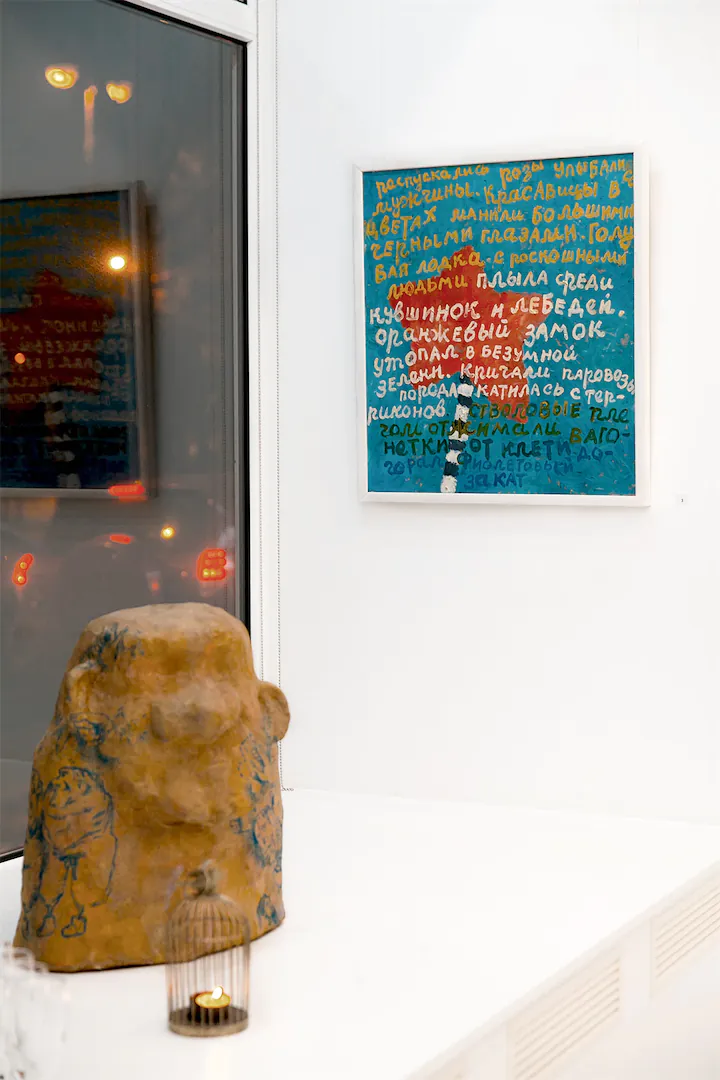 распускались розы улыбались
мужчины. Красавицы в
цветах манили большими
черными глазами. Голу
бая лодка с роскошными
людьми плыла среди
кувшинок и лебедей.
оранжевый замок
утопал в безумной
зелени. Кричали паровозы
порода катилась с тер-
риконов стволовые пле
чом отжимали ваго-
нетки от клети до-
горал фиолетовый
закат